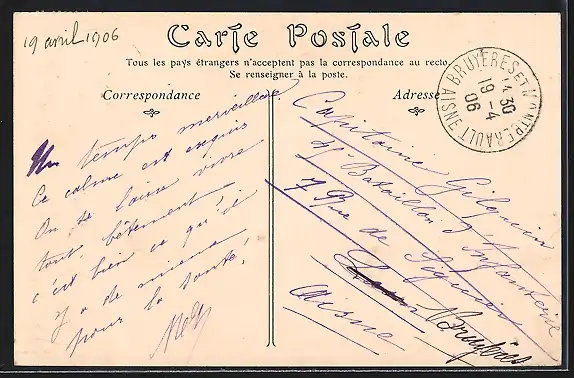 19 avril 1906
Carte Postale
Tous les pays étrangers n'acceptent pas la correspondance au recto.
Se renseigner à la poste.
Correspondance
Adresse
BRUYERES ET MONTBERAULT AISNE
14 30
19 - 4
06
Un temps merveilleux.
Ce calme est exquis
On se laisse vivre
tout bêtement
c'est bien ce qu'il
y a de mieux
pour la santé!
Capitaine Gilquin
Bataillon d'Infanterie
7 Rue de
Bruyères
Aisne